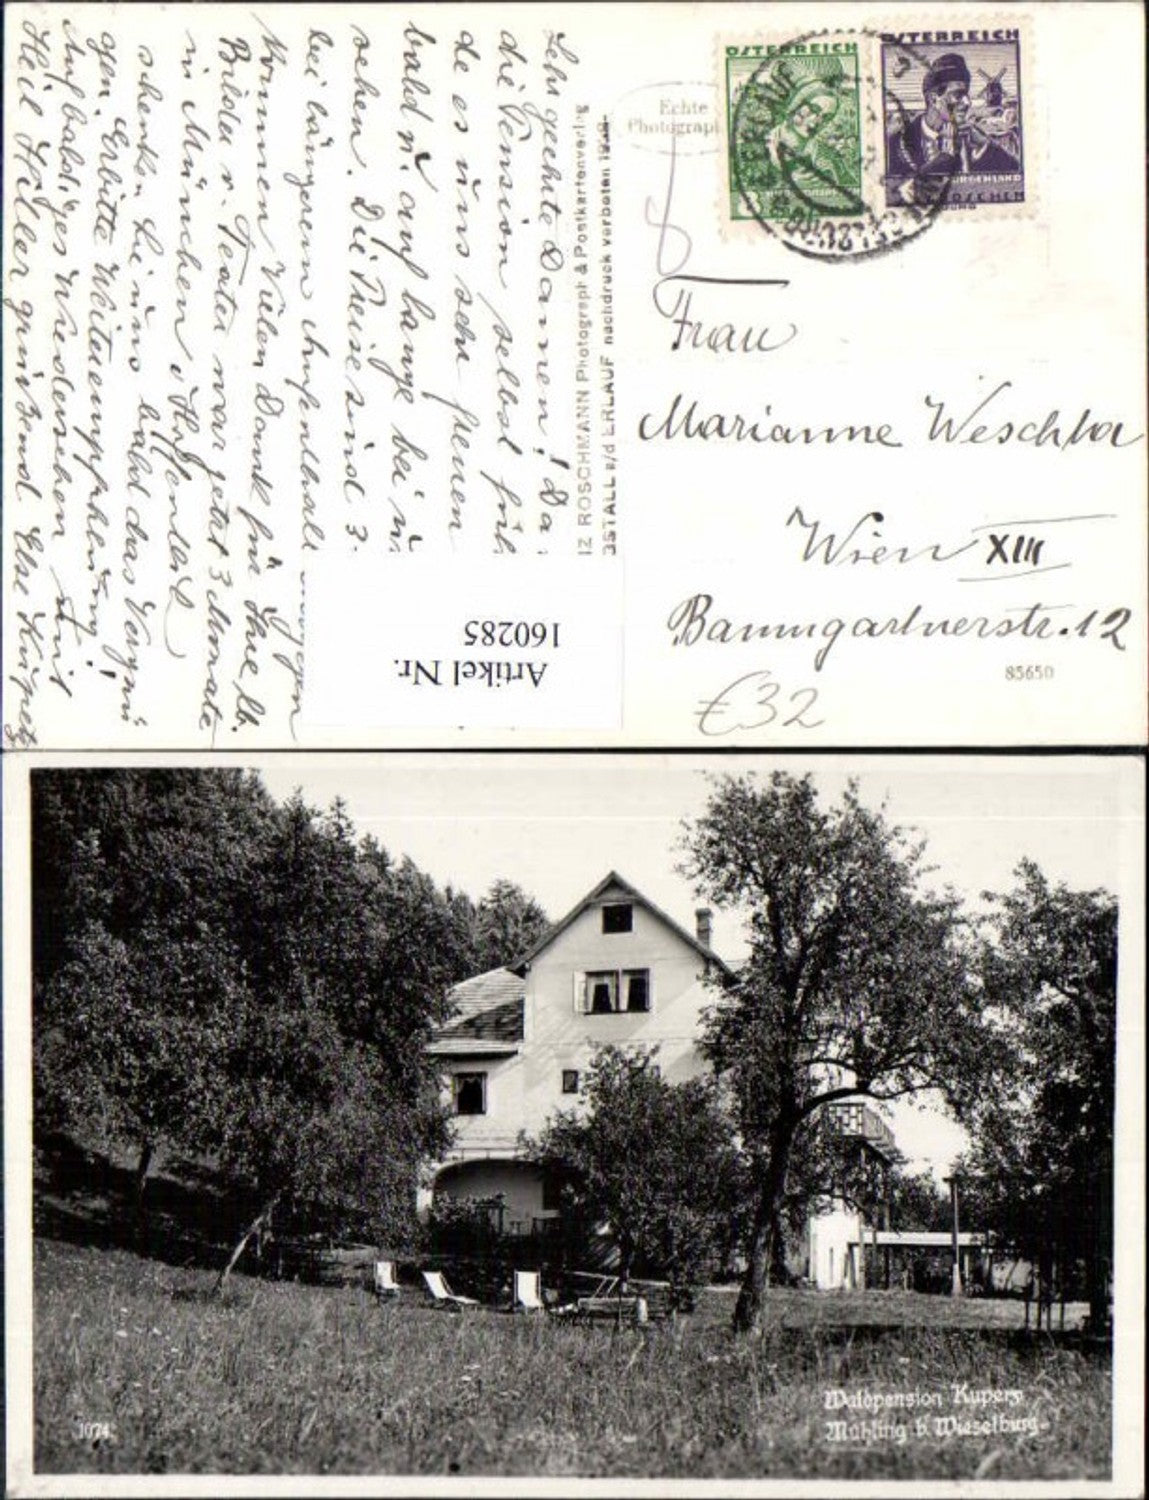 Sehr geehte Damen! Da
die Pension selbst früh
de es uns sehr freuen
bald u. auf lange bei u
sehen. Die Preise sind 3.
bei längerem Aufenthalt
kommen Vielen Dank für Ihre lb.
Bilder v. war jetzt 3 Monate
in München
schenken Sie uns bald das Vergnü
gen. Erbitte Weiterempfehlung!
Auf baldiges Wiedersehen mit
Heil Hitler grüssend Else
IZ ROSCHMANN Photograph & Postkartenverlag
OSTALL a/d ERLAUF nachdruck verboten
Echte
Photograph
ÖSTERREICH
ÖSTERREICH
BURGENLAND
Frau
Marianne Weschka
Wien XIII
Baumgartnerstr. 12
85650
€32
Artikel Nr.
160285
1074
Waldpension Kupers
Mühling b. Wieselburg